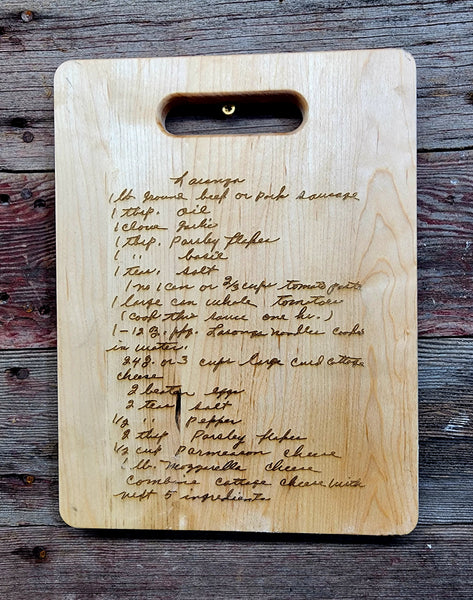 Lasanga
1 lb ground beef or pork sausage
1 tbsp. oil
1 clove garlic
1 tbsp. Parsley flakes
1 " basil
1 teas. salt
1 no 1 can or 2/3 cups tomato paste
1 large can whole tomatoes
(Cook this sauce one hr.)
1-12 z. pkg. Lasanga noodles cook
in water.
24 z. or 3 cups large curd cottage
cheese
2 beaten eggs
2 teas salt
1/2 " pepper
2 tbsp Parsley flakes
1/2 cup Parmesan cheese
1 lb. Mozzarella cheese
Combine cottage cheese with
next 5 ingredients